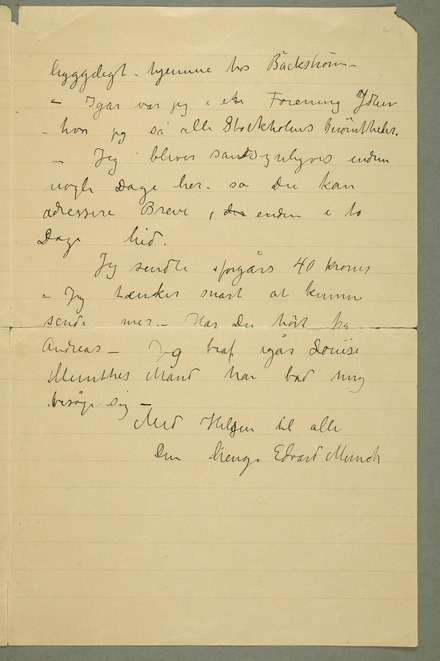 hyggeligt – hjemme hos Bäckström –
– Igår var jeg i en Forening Idun
– hvor jeg så alle Stockholms Berömtheder.
– Jeg bliver sandsynligvis endnu
nogle Dage her – så Du kan
adressere Breve, enden i to
Dage hid.
Jeg sendte forgårs 40 kroner
– Jg tænker snart at kunne
sende mer. – Har Du hørt fra
Andreas – Jeg traf igår Louise
Munthes Mand han bad mig
besøge sig –
Med Hilsen til alle
Din hengivne Edvard Munch